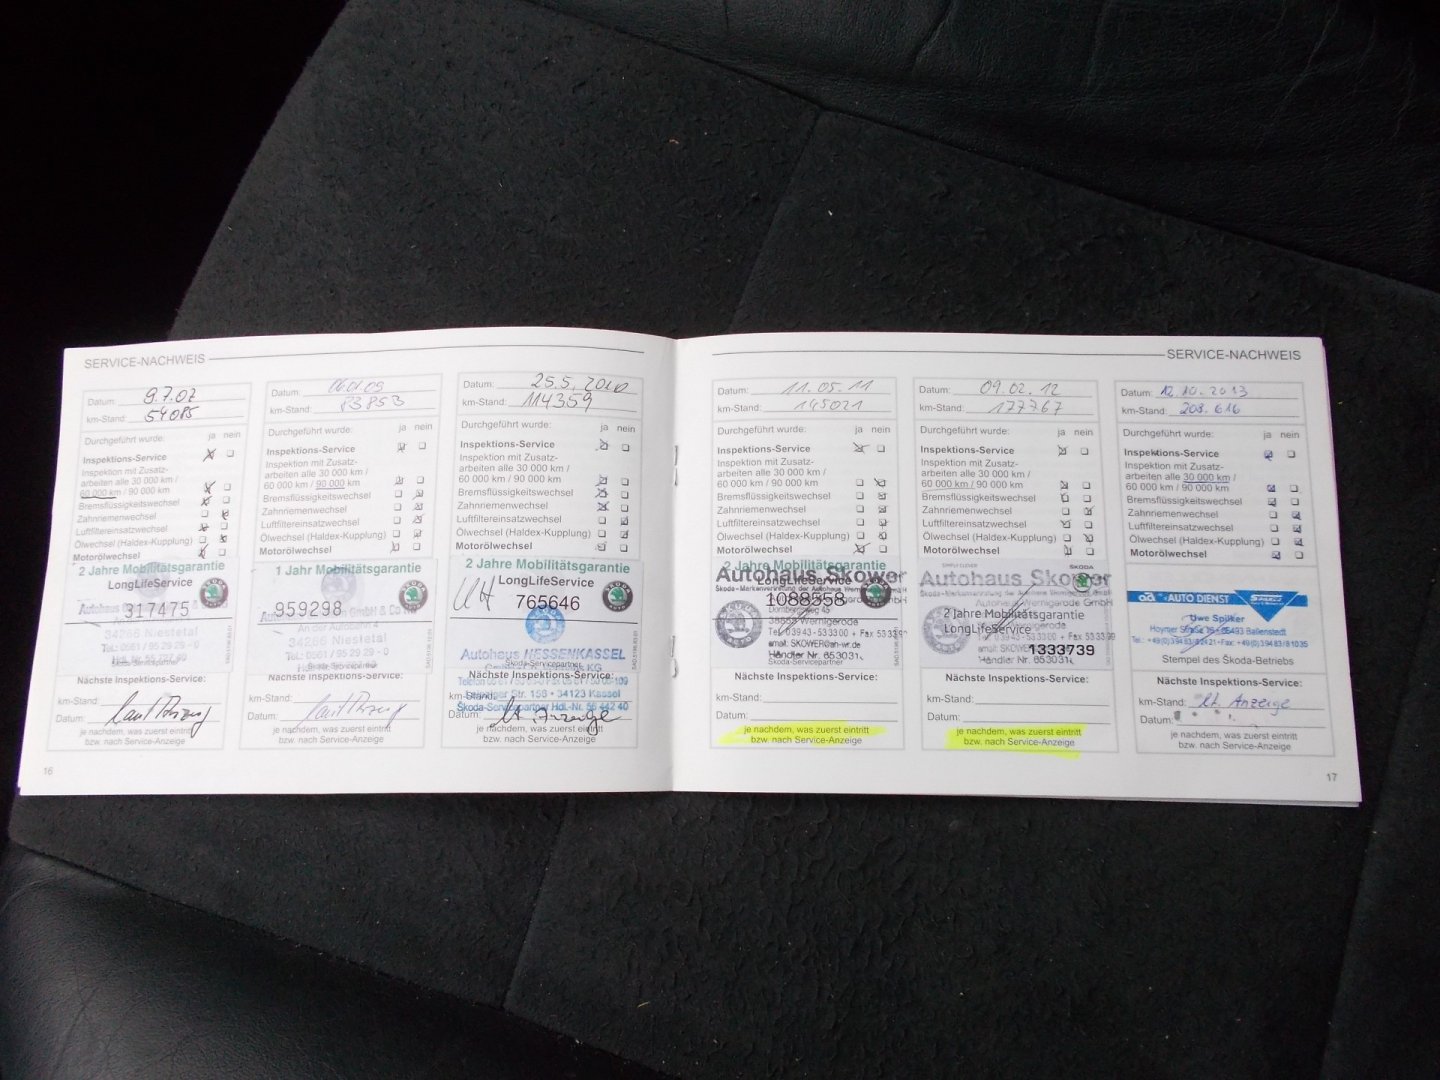 SERVICE-NACHWEIS
Datum: 9.7.07
km-Stand: 54085
Durchgeführt wurde: ja nein
Inspektions-Service
Inspektion mit Zusatz-
arbeiten alle 30 000 km /
60 000 km / 90 000 km
Bremsflüssigkeitswechsel
Zahnriemenwechsel
Luftfiltereinsatzwechsel
Ölwechsel (Haldex-Kupplung)
Motorölwechsel
2 Jahre Mobilitätsgarantie
LongLifeService
317475
34266 Niestetal
Tel.: 0561 / 95 29 29 - 0
Nächste Inspektions-Service:
km-Stand:
Datum:
je nachdem, was zuerst eintritt
bzw. nach Service-Anzeige
16
Datum: 06.01.09
km-Stand: 83853
Durchgeführt wurde: ja nein
Inspektions-Service
Inspektion mit Zusatz-
arbeiten alle 30 000 km /
60 000 km / 90 000 km
Bremsflüssigkeitswechsel
Zahnriemenwechsel
Luftfiltereinsatzwechsel
Ölwechsel (Haldex-Kupplung)
Motorölwechsel
1 Jahr Mobilitätsgarantie
959298
34266 Niestetal
Tel.: 0561 / 95 29 29 - 0
Nächste Inspektions-Service:
km-Stand:
Datum:
je nachdem, was zuerst eintritt
bzw. nach Service-Anzeige
Datum: 25.5.2010
km-Stand: 114359
Durchgeführt wurde: ja nein
Inspektions-Service
Inspektion mit Zusatz-
arbeiten alle 30 000 km /
60 000 km / 90 000 km
Bremsflüssigkeitswechsel
Zahnriemenwechsel
Luftfiltereinsatzwechsel
Ölwechsel (Haldex-Kupplung)
Motorölwechsel
2 Jahre Mobilitätsgarantie
LongLifeService
765646
Autohaus HESSENKASSEL
Skoda-Servicepartner
Nächste Inspektions-Service:
km-Stand:
Str. 158 • 34123 Kassel
Skoda-Servicepartner Hdl.-Nr. 55 442 40
Datum: lt. Anzeige
je nachdem, was zuerst eintritt
bzw. nach Service-Anzeige
SERVICE-NACHWEIS
Datum: 11.05.11
km-Stand: 145021
Durchgeführt wurde: ja nein
Inspektions-Service
Inspektion mit Zusatz-
arbeiten alle 30 000 km /
60 000 km / 90 000 km
Bremsflüssigkeitswechsel
Zahnriemenwechsel
Luftfiltereinsatzwechsel
Ölwechsel (Haldex-Kupplung)
Motorölwechsel
2 Jahre Mobilitätsgarantie
Autohaus Skower
LongLifeService
1088558
38855 Wernigerode
Tel. 03943 - 533300 + Fax 53339
email: SKOWER@an-wr.de
Händler Nr. 653031
Skoda-Servicepartner
Nächste Inspektions-Service:
km-Stand:
Datum:
je nachdem, was zuerst eintritt
bzw. nach Service-Anzeige
Datum: 09.02.12
km-Stand: 177767
Durchgeführt wurde: ja nein
Inspektions-Service
Inspektion mit Zusatz-
arbeiten alle 30 000 km /
60 000 km / 90 000 km
Bremsflüssigkeitswechsel
Zahnriemenwechsel
Luftfiltereinsatzwechsel
Ölwechsel (Haldex-Kupplung)
Motorölwechsel
SIMPLY CLEVER SKODA
Autohaus Skower
Autohaus Wernigerode GmbH
2 Jahre Mobilitätsgarantie
LongLifeService
1333739
Händler Nr. 653031
Nächste Inspektions-Service:
km-Stand:
Datum:
je nachdem, was zuerst eintritt
bzw. nach Service-Anzeige
Datum: 12.10.2013
km-Stand: 208.616
Durchgeführt wurde: ja nein
Inspektions-Service
Inspektion mit Zusatz-
arbeiten alle 30 000 km /
60 000 km / 90 000 km
Bremsflüssigkeitswechsel
Zahnriemenwechsel
Luftfiltereinsatzwechsel
Ölwechsel (Haldex-Kupplung)
Motorölwechsel
ad AUTO DIENST
Uwe Spilker
Hoymer Straße 19 • 06493 Ballenstedt
Stempel des Skoda-Betriebs
Nächste Inspektions-Service:
km-Stand: lt. Anzeige
Datum:
je nachdem, was zuerst eintritt
bzw. nach Service-Anzeige
17